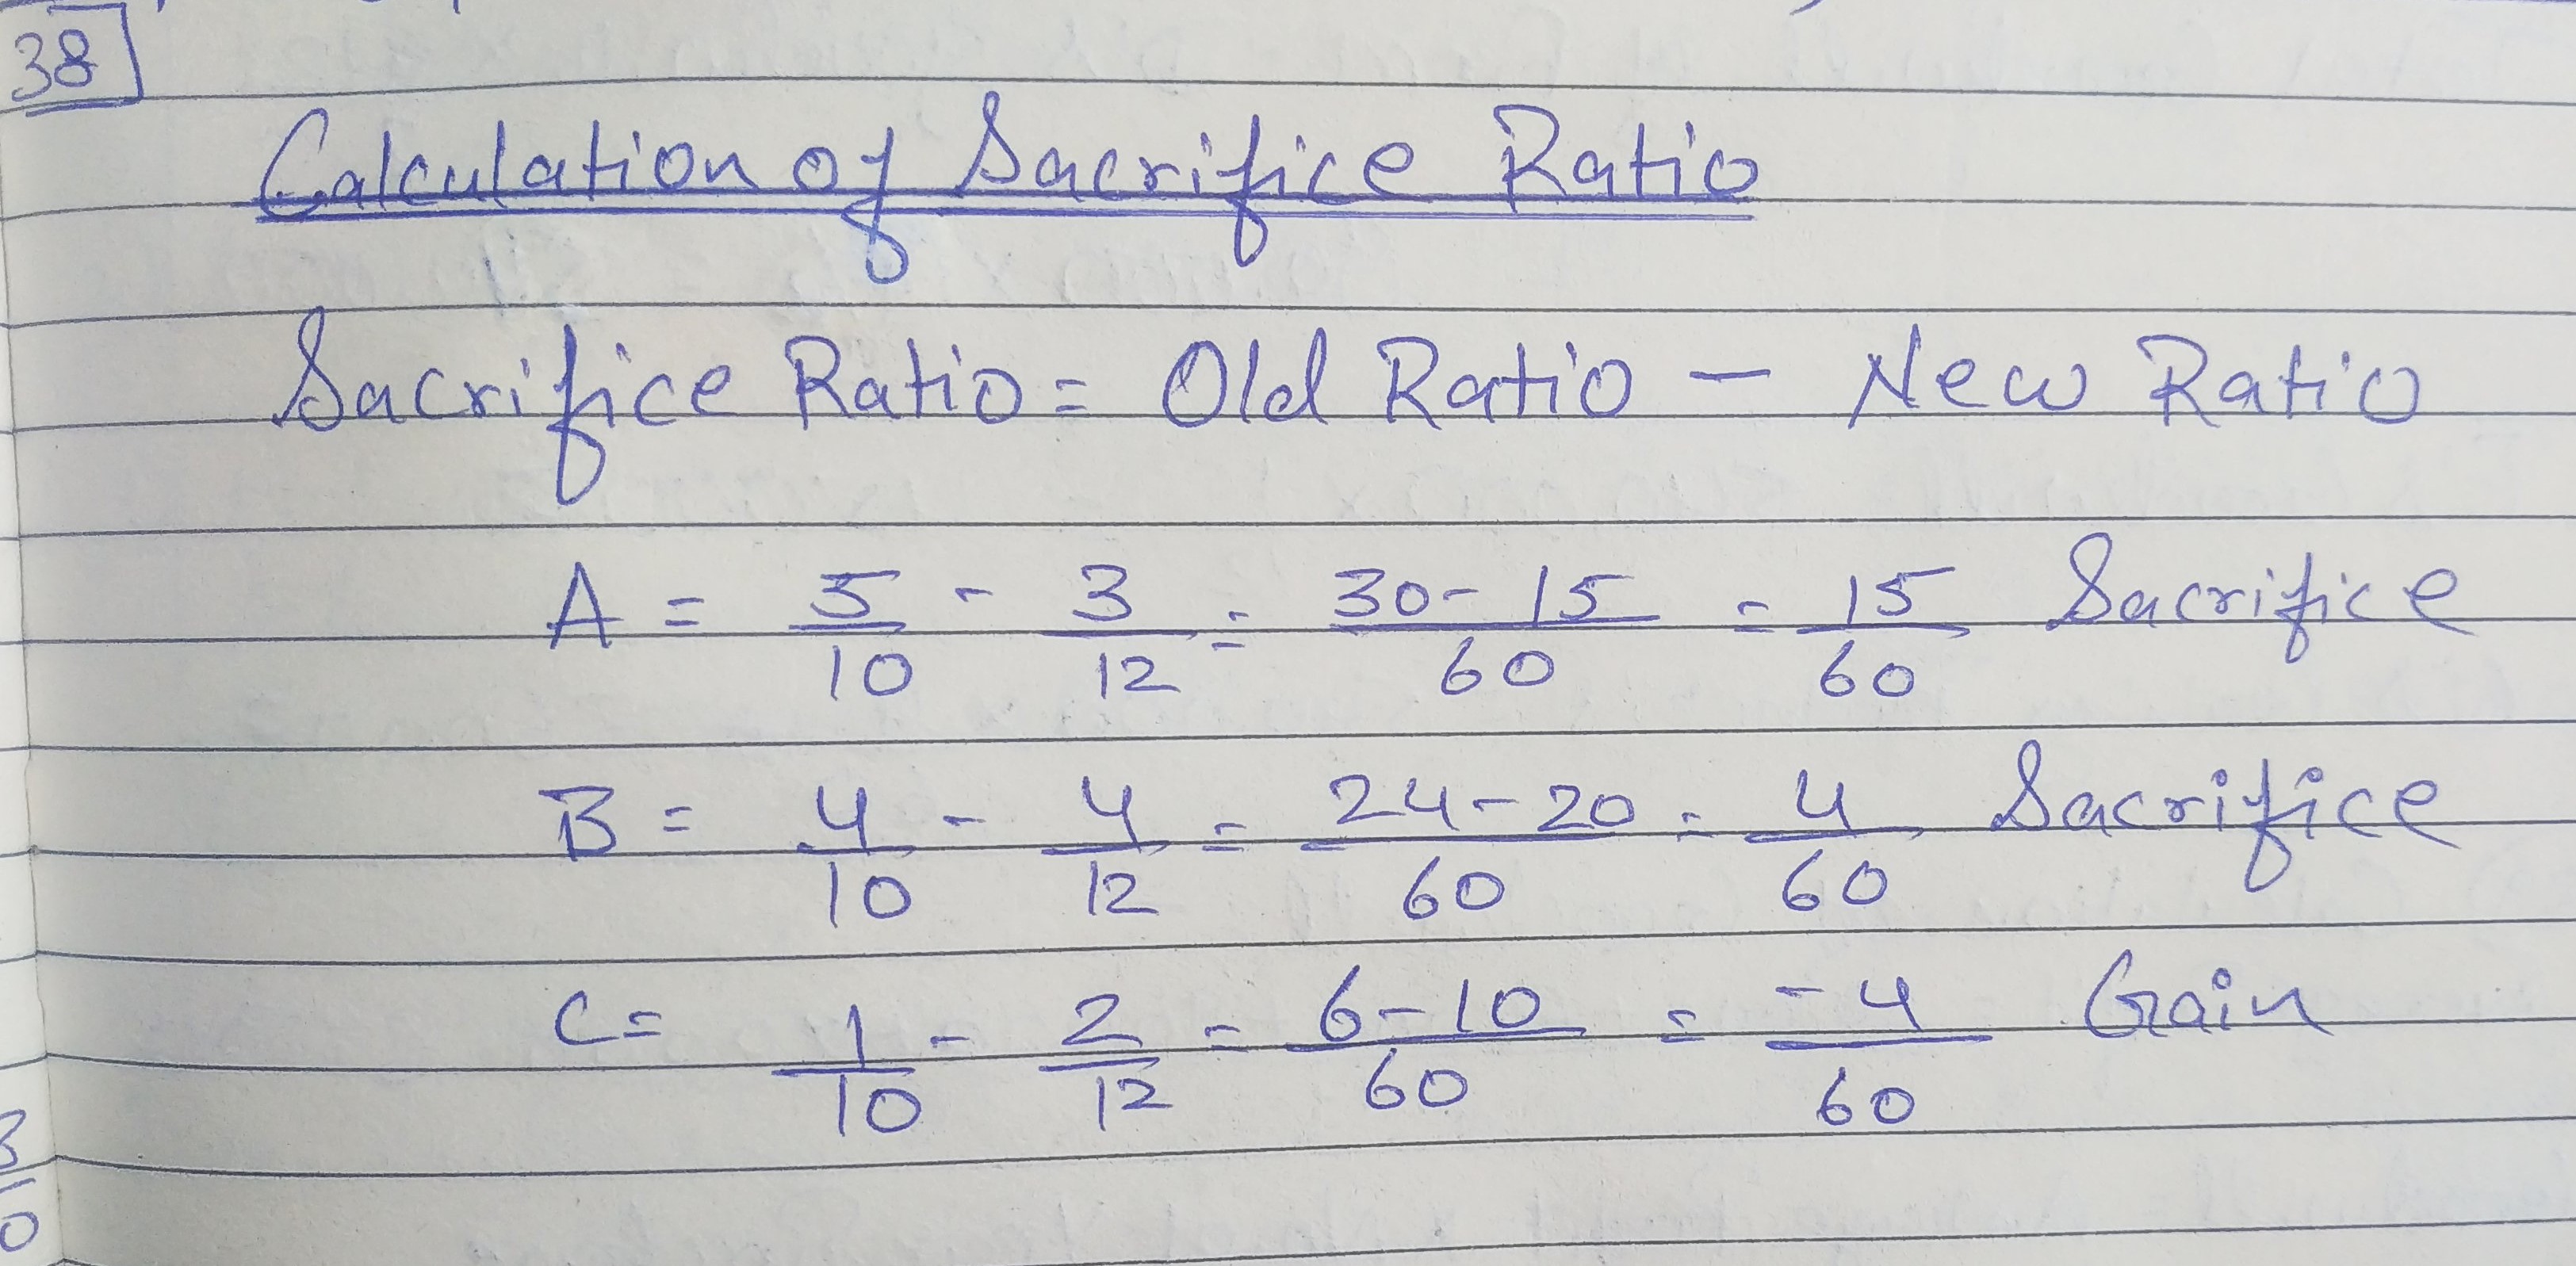 38
Calculation of Sacrifice Ratio
Sacrifice Ratio = Old Ratio - New Ratio
A = 5/10 - 3/12 = 30-15/60 = 15/60 Sacrifice
B = 4/10 - 4/12 = 24-20/60 = 4/60 Sacrifice
C = 1/10 - 2/12 = 6-10/60 = -4/60 Gain
3
0